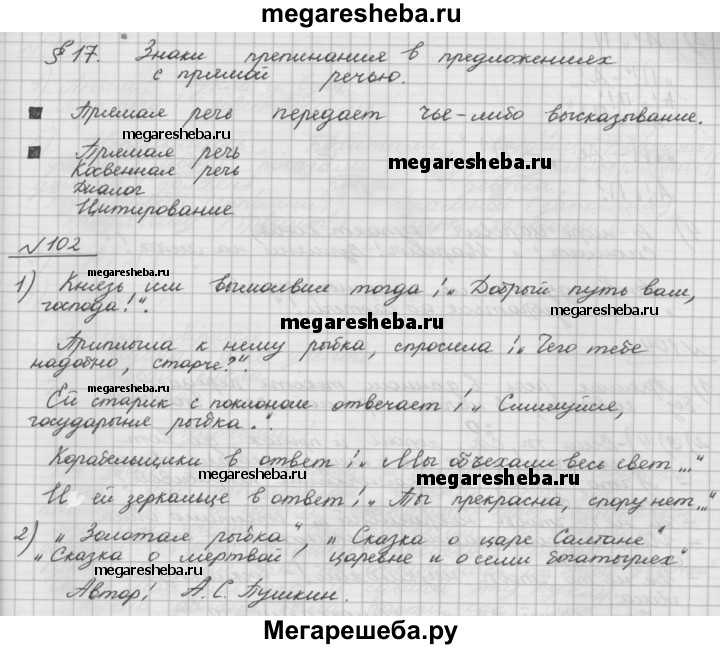 megaresheba.ru
§ 17. Знаки препинания в предложениях
с прямой речью.
Прямая речь передает чье-либо высказывание.
megaresheba.ru
Прямая речь
megaresheba.ru
Косвенная речь
Диалог
Цитирование
№ 102
1) Князь им вымолвил тогда: „Добрый путь вам,
megaresheba.ru
господа!".
megaresheba.ru
Приплыла к нему рыбка, спросила: „Чего тебе
надобно, старче?".
megaresheba.ru
Ей старик с поклоном отвечает: „Смилуйся,
государыня рыбка.".
Корабельщики в ответ: „Мы объехали весь свет..."
megaresheba.ru
megaresheba.ru
И ей зеркальце в ответ: „Ты прекрасна, спору нет..."
megaresheba.ru
2) „Золотая рыбка", „Сказка о царе Салтане"
„Сказка о мёртвой царевне и о семи богатырях"
megaresheba.ru
megaresheba.ru
Автор: А.С. Пушкин.
Мегарешеба.ру